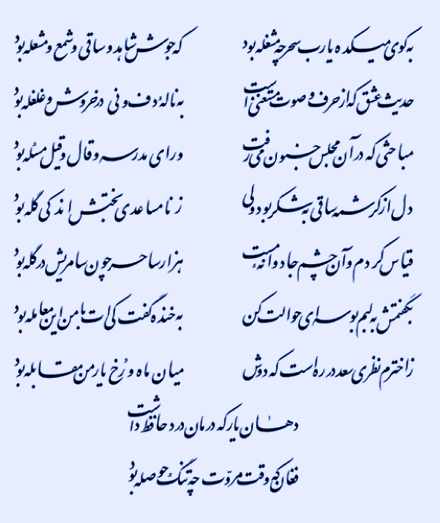 به کوی میکده یا رب سحر چه مشغله بود که جوش شاهد و ساقی و شمع و مشعله بود
حدیث عشق که از حرف و صوت مستغنی است به ناله دف و نی در خروش و غلغله بود
مباحثی که در آن مجلس جنون می‌رفت ورای مدرسه و قال و قیل مسئله بود
دل از کرشمه ساقی به شکر بود ولی ز نامساعدی بختش اندکی گله بود
قیاس کردم و آن چشم جادوانه مست هزار ساحر چون سامریش در گله بود
بگفتمش به لبم بوسه‌ای حوالت کن به خنده گفت کی‌ات با من این معامله بود
ز اخترم نظری سعد در ره است که دوش میان ماه و رخ یار من مقابله بود
دهان یار که درمان درد حافظ داشت
فغان که وقت مروت چه تنگ حوصله بود